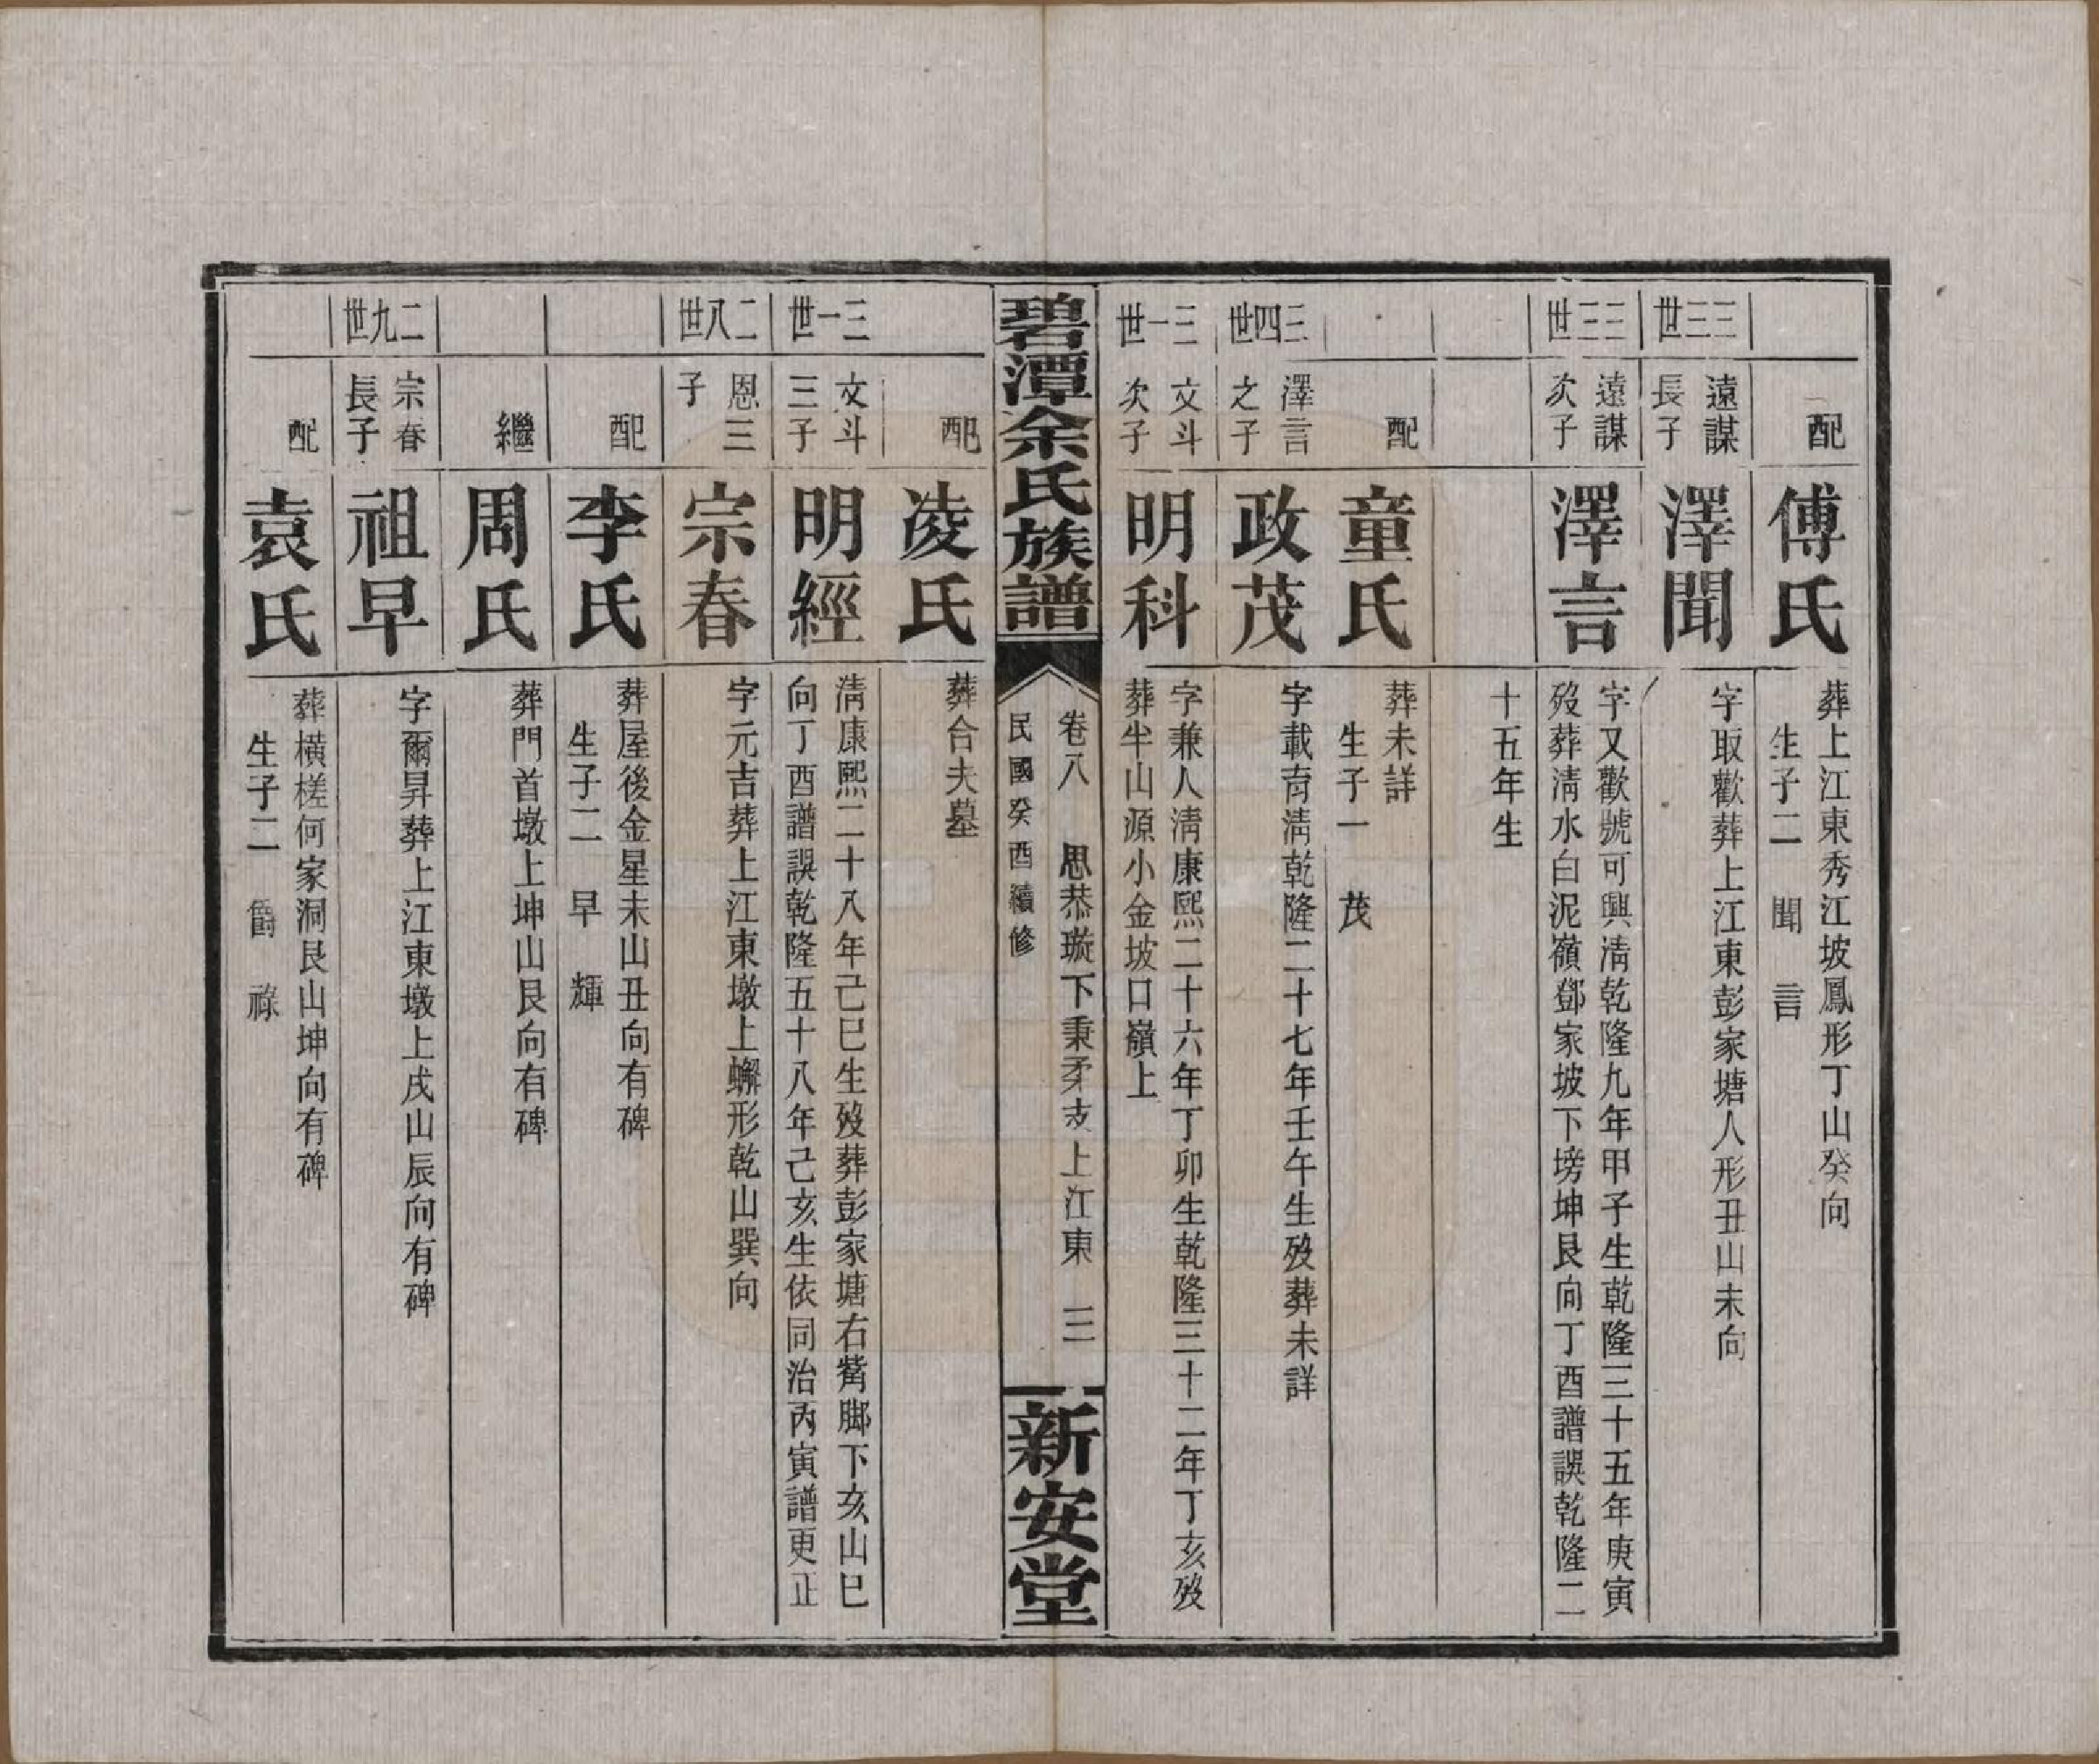 配
傅氏
葬上江東秀江坡鳳形丁山癸向
生子二　聞　言
三三世
遠謀
長子
澤聞
字取歡葬上江東彭家塘人形丑山未向
三三世
遠謀
次子
澤言
字又歡號可興淸乾隆九年甲子生乾隆三十五年庚寅
歿葬淸水白泥嶺鄧家坡下塝坤艮向丁酉譜誤乾隆二
十五年生
配
童氏
葬未詳
生子一　茂
三四世
澤言
之子
政茂
字載育淸乾隆二十七年壬午生歿葬未詳
三一世
文斗
次子
明科
字兼人淸康熙二十六年丁卯生乾隆三十二年丁亥歿
葬半山源小金坡口嶺上
碧潭余氏族譜
卷八　思恭璇下秉柔支上江東　三
民國癸酉續修
新安堂
配
凌氏
葬合夫墓
三一世
文斗
三子
明經
淸康熙二十八年己巳生歿葬彭家塘右觜脚下亥山巳
向丁酉譜誤乾隆五十八年己亥生依同治丙寅譜更正
二八世
恩三
子
宗春
字元吉葬上江東墩上蠏形乾山巽向
配
李氏
葬屋後金星未山丑向有碑
生子二　早　輝
繼
周氏
葬門首墩上坤山艮向有碑
二九世
宗春
長子
祖早
字爾昇葬上江東墩上戌山辰向有碑
配
袁氏
葬橫槎何家洞艮山坤向有碑
生子二　爵　祿